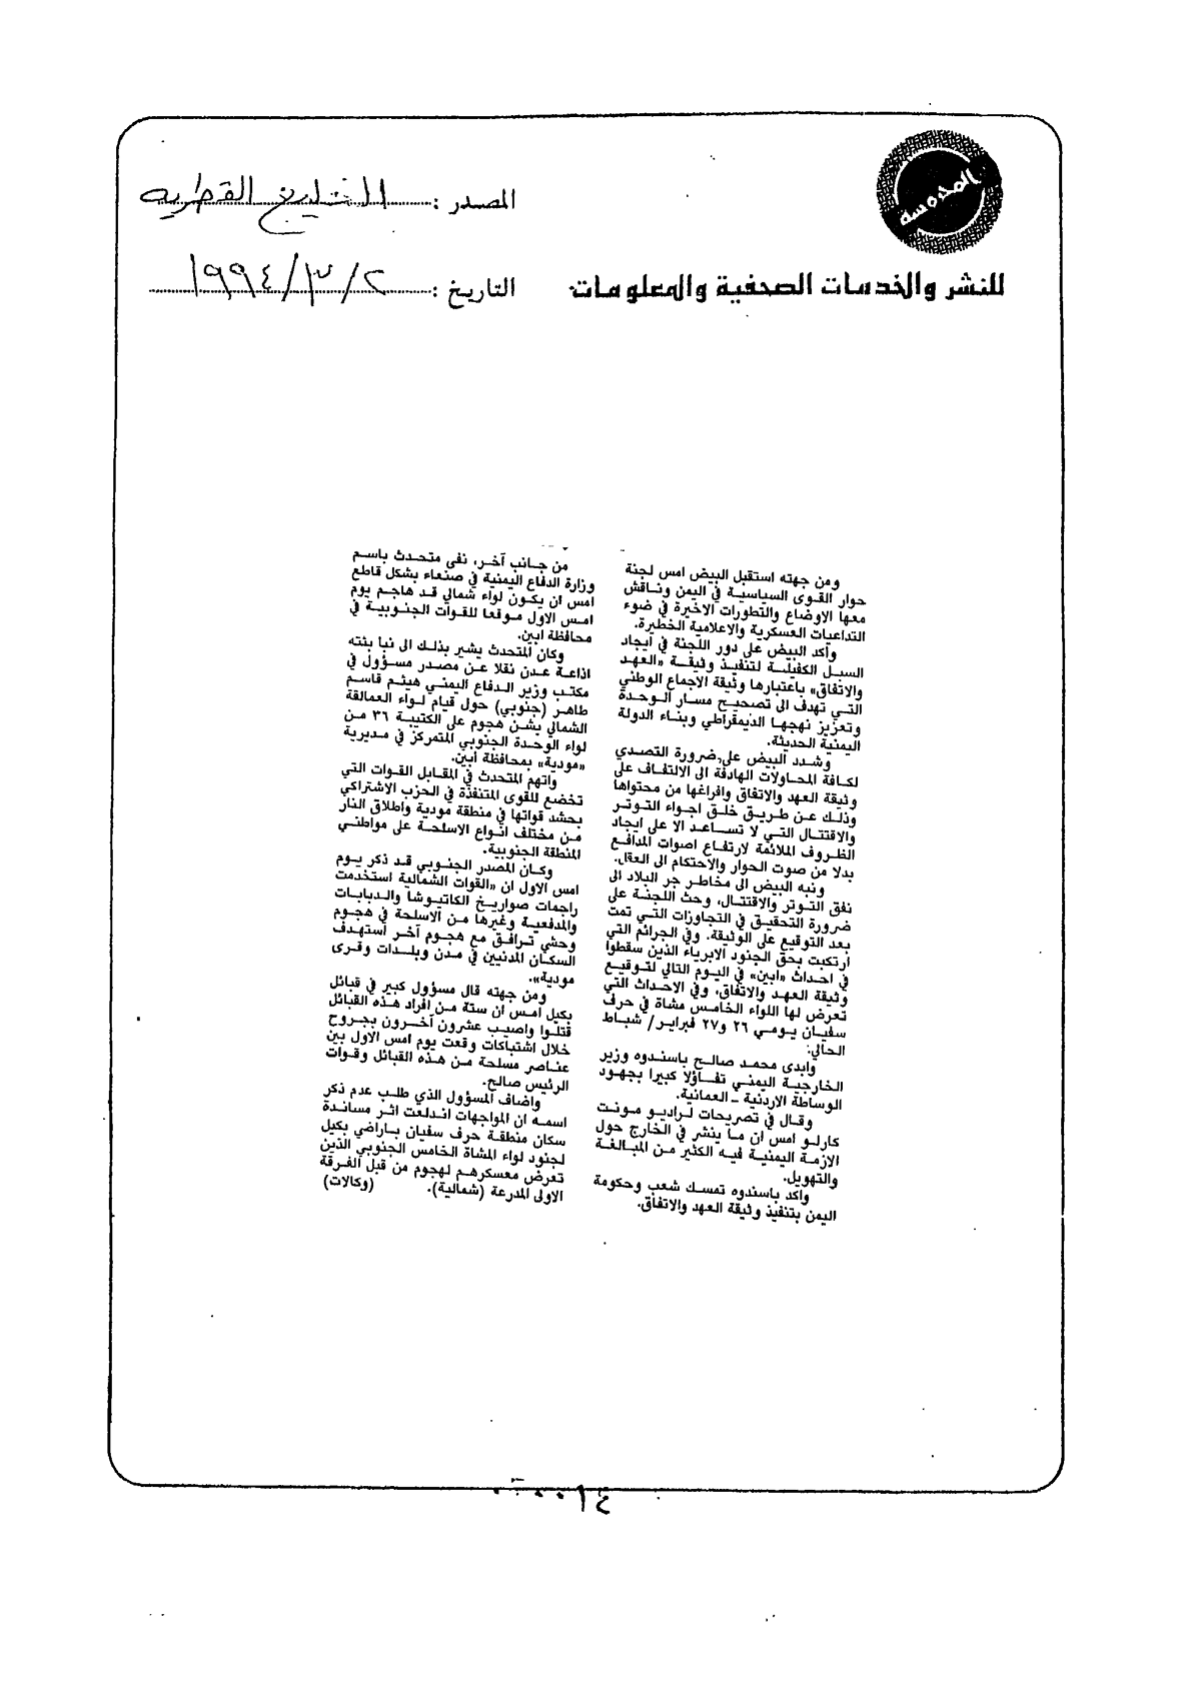 المحروسة
المصدر : الخليج القطريه
للنشر والخدمات الصحفية والمعلومات
التاريخ : ٢/٣/١٩٩٤
ومن جهته استقبل البيض امس لجنة
حوار القوى السياسية في اليمن وناقش
معها الاوضاع والتطورات الاخيرة في ضوء
التداعيات العسكرية والاعلامية الخطيرة.
واكد البيض على دور اللجنة في ايجاد
السبل الكفيلة لتنفيذ وثيقة «العهد
والاتفاق» باعتبارها وثيقة الاجماع الوطني
التي تهدف الى تصحيح مسار الوحدة
وتعزيز نهجها الديمقراطي وبناء الدولة
اليمنية الحديثة.
وشدد البيض على ضرورة التصدي
لكافة المحاولات الهادفة الى الالتفاف على
وثيقة العهد والاتفاق وافراغها من محتواها
وذلك عن طريق خلق اجواء التوتر
والاقتتال التي لا تساعد الا على ايجاد
الظروف الملائمة لارتفاع اصوات المدافع
بدلا من صوت الحوار والاحتكام الى العقل.
ونبه البيض الى مخاطر جر البلاد الى
نفق التوتر والاقتتال، وحث اللجنة على
ضرورة التحقيق في التجاوزات التي تمت
بعد التوقيع على الوثيقة، وفي الجرائم التي
ارتكبت بحق الجنود الابرياء الذين سقطوا
في احداث «ابين» في اليوم التالي لتوقيع
وثيقة العهد والاتفاق، وفي الاحداث التي
تعرض لها اللواء الخامس مشاة في حرف
سفيان يومي ٢٦ و٢٧ فبراير/ شباط
الحالي:
وابدى محمد صالح باسندوه وزير
الخارجية اليمني تفاؤلا كبيرا بجهود
الوساطة الاردنية ـ العمانية.
وقال في تصريحات لراديو مونت
كارلو امس ان ما ينشر في الخارج حول
الازمة اليمنية فيه الكثير من المبالغة
والتهويل.
واكد باسندوه تمسك شعب وحكومة
اليمن بتنفيذ وثيقة العهد والاتفاق.
من جانب آخر، نفى متحدث باسم
وزارة الدفاع اليمنية في صنعاء بشكل قاطع
امس ان يكون لواء شمالي قد هاجم يوم
امس الاول موقعا للقوات الجنوبية في
محافظة ابين.
وكان المتحدث يشير بذلك الى نبا بثته
اذاعة عدن نقلا عن مصدر مسؤول في
مكتب وزير الدفاع اليمني هيثم قاسم
طاهر (جنوبي) حول قيام لواء العمالقة
الشمالي بشن هجوم على الكتيبة ٣٦ من
لواء الوحدة الجنوبي المتمركز في مديرية
«مودية» بمحافظة ابين.
واتهم المتحدث في المقابل القوات التي
تخضع للقوى المتنفذة في الحزب الاشتراكي
بحشد قواتها في منطقة مودية واطلاق النار
من مختلف انواع الاسلحة على مواطني
المنطقة الجنوبية.
وكان المصدر الجنوبي قد ذكر يوم
امس الاول ان «القوات الشمالية استخدمت
راجمات صواريخ الكاتيوشا والدبابات
والمدفعية وغيرها من الاسلحة في هجوم
وحشي ترافق مع هجوم آخر استهدف
السكان المدنيين في مدن وبلدات وقرى
مودية».
ومن جهته قال مسؤول كبير في قبائل
بكيل امس ان ستة من افراد هذه القبائل
قتلوا واصيب عشرون آخرون بجروح
خلال اشتباكات وقعت يوم امس الاول بين
عناصر مسلحة من هذه القبائل وقوات
الرئيس صالح.
واضاف المسؤول الذي طلب عدم ذكر
اسمه ان المواجهات اندلعت اثر مساندة
سكان منطقة حرف سفيان باراضي بكيل
لجنود لواء المشاة الخامس الجنوبي الذين
تعرض معسكرهم لهجوم من قبل الفرقة
الاولى المدرعة (شمالية). (وكالات)